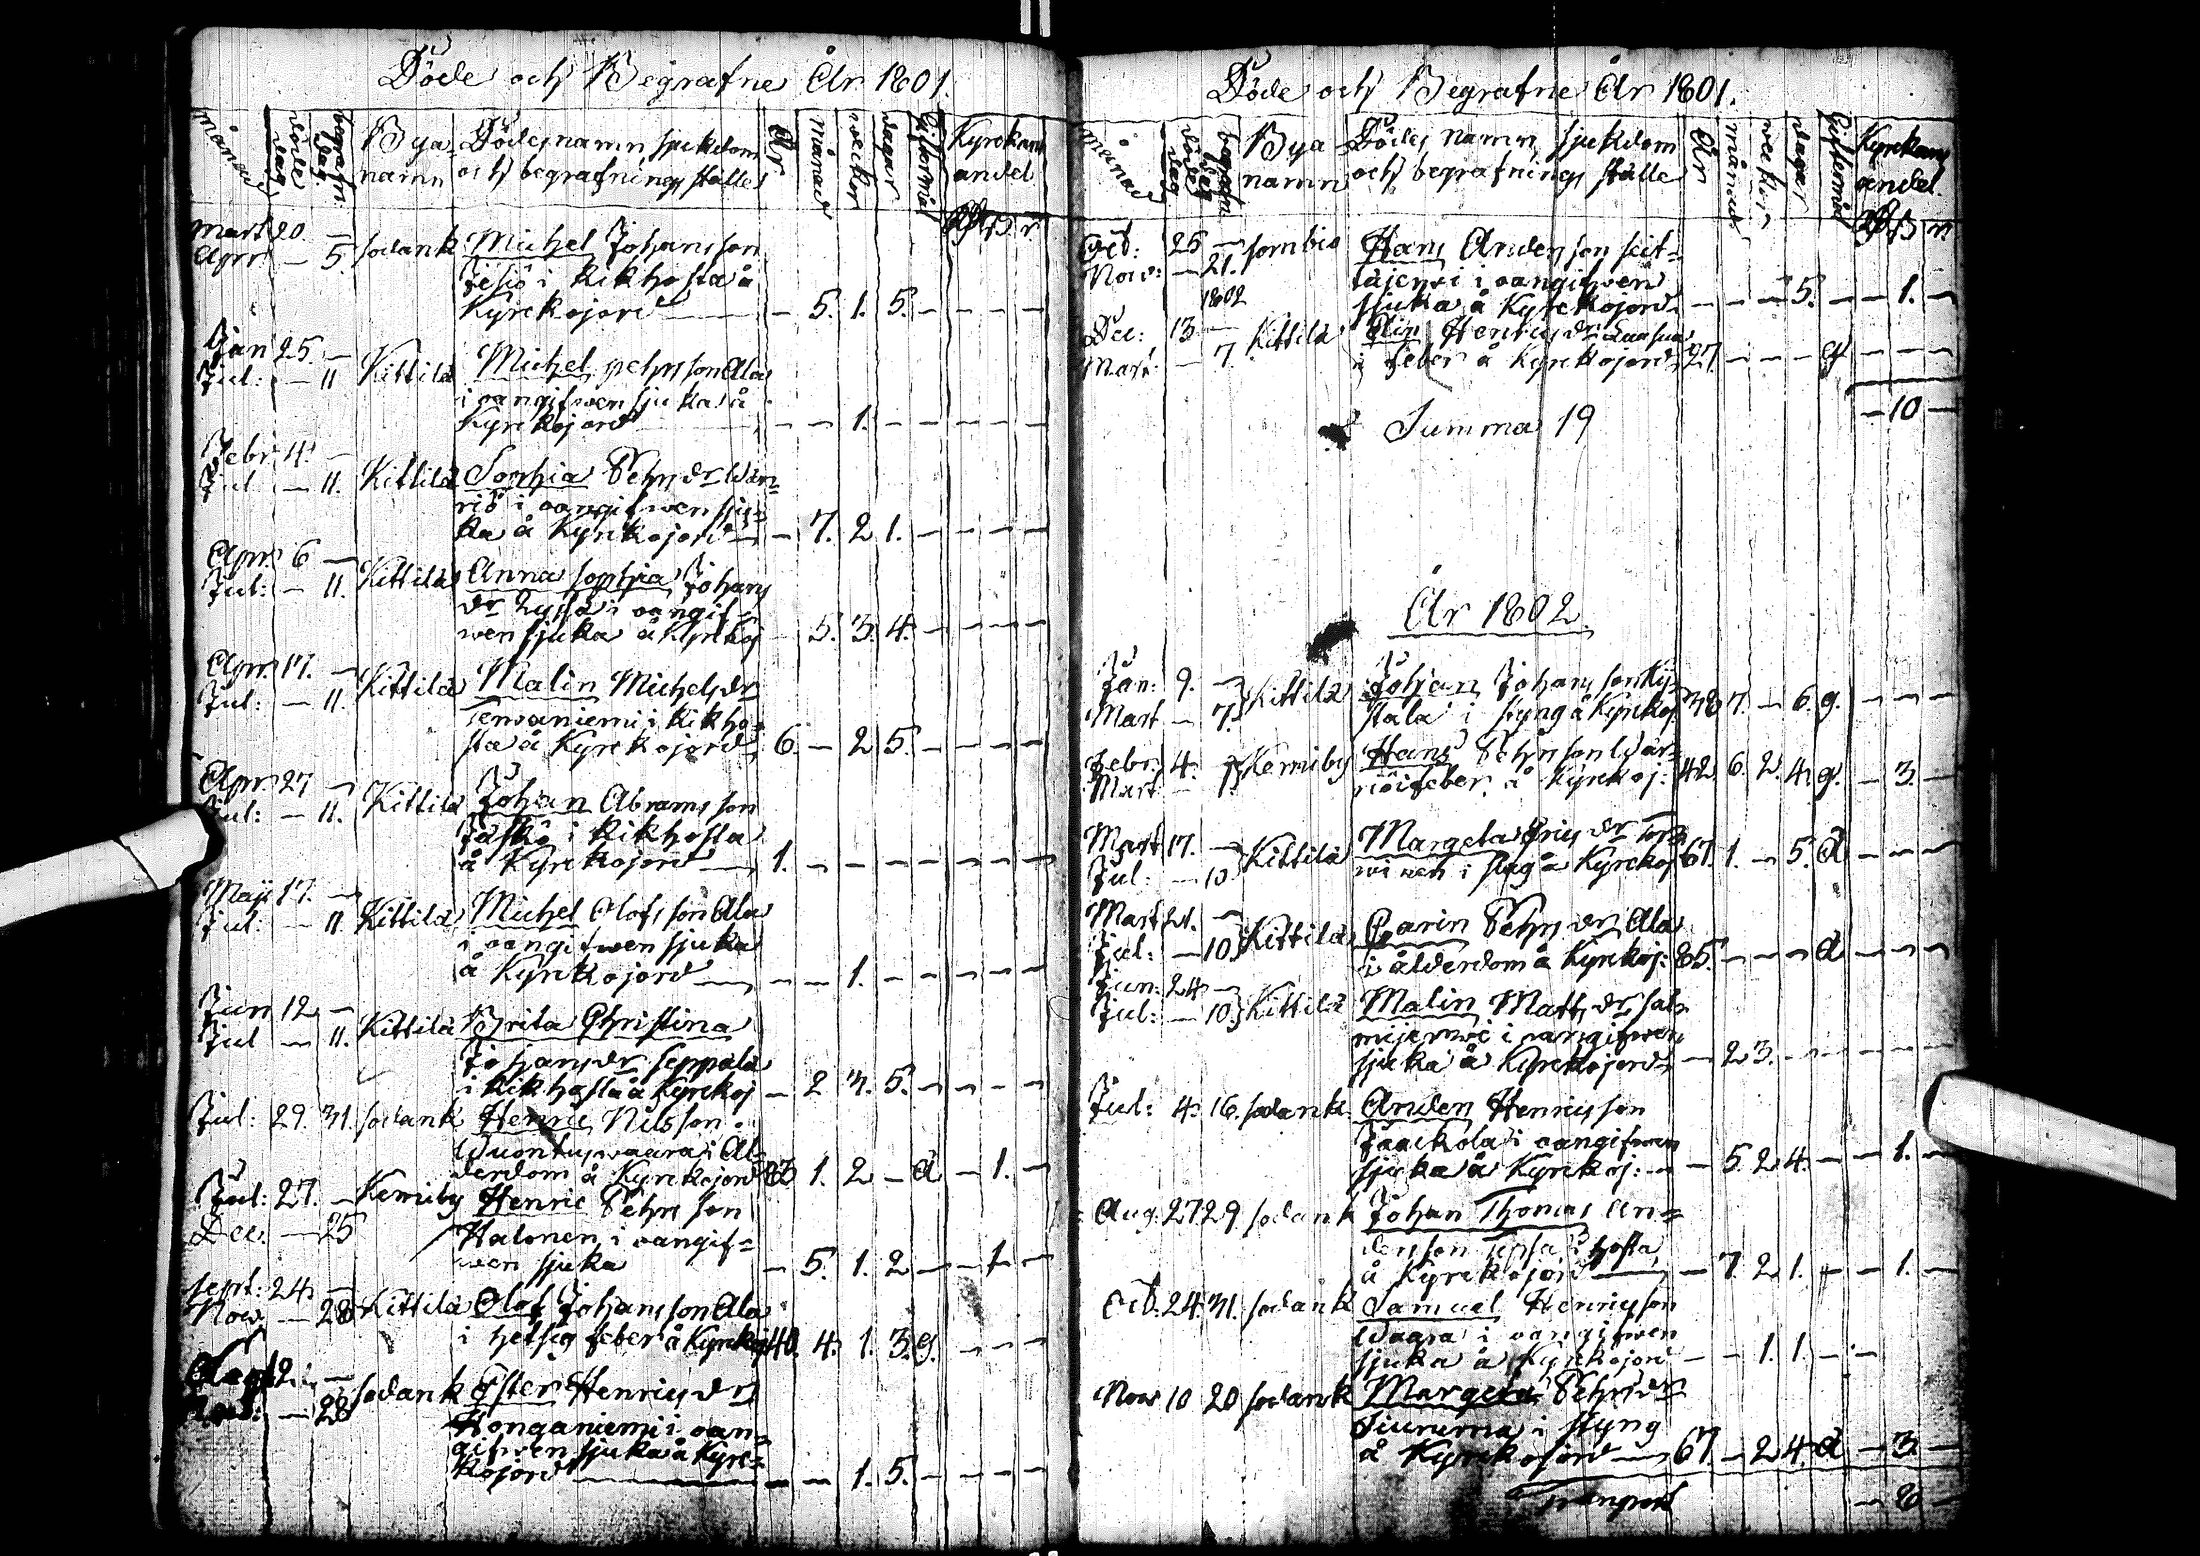 Döde och Begrafne År 1801.
månad döde dag begrafn. dag. Bya namn Dödes namn, sjukdom och begrafnings ställe År månad weckor dagar Giftermål Kyrkans andel
Mart 20. —
Apr: — 5. Sodank Michel Johansson
Jesiö i Kikhosta å
Kyrkojord — 5. 1. 5. — — — —
Jan 25. —
Jul: — 11 Kittilä Michel Pehrsson Ala
i oangifwen sjuka å
Kyrkojord — — 1. — — — — —
Febr. 4. —
Jul — 11. Kittilä Sophia Pehrs dr Wän=
riö i oangifwen sju=
ka å Kyrkojord — — 7. 2 1. — — — —
Apr. 6 —
Jul: — 11. Kittilä Anna Sophia Johans
dr i oangif=
wen sjuka å Kyrkoj — 5. 3. 4. — — — —
Apr. 17. —
Jul: — 11. Kittilä Malin Michels dr
Tensaniemi i Kikho=
sta å Kyrkojord 6. — 2 5. — — — —
Apr. 27 —
Jul: — 11. Kittilä Johan Abramsson
Jäskö i Kikhosta
å Kyrkojord — 1. — — — — — — —
Maji 17. —
Jul. — 11 Kittilä Michel Olofsson Ala
i oangifwen sjuka
å Kyrkojord — — — 1. — — — — —
Jun 12 —
Jul — 11. Kittilä Brita Christina
Johans dr Seppälä
i Kikhosta å Kyrkoj — 2 3. 5. — — — —
Jul: 29. 31. Sodank Henric Nilsson
Wuontuswaara i Ål=
derdom å Kyrkojord 83 1. 2 — d — 1. —
Jul: 27. — Kemiby Henric Pehrsson
Dec. — 25 Halonen i oangif=
wen sjuka — 5. 1. 2 — — 1 —
Sept: 24. —
Now. — 28 Kittilä Olof Johansson Ala
i hetsig feber å Kyrkoj 40. 4. 1. 3. g. — — —
2. —
— 28 Sodank Ester Henrics dr
Konganiemi i oan=
gifwen sjuka å Kyr=
kojord — — — 1. 5. — — — —
Döde och Begrafne År 1801.
månad döde dag begrafn dag Bya namn Dödes namn, sjukdom och begrafnings ställe År månad weckor dagar Giftermål Kyrkans andel
Oct: 25 —
Now: — 21. Sombio Hans Andersson Seit=
täjerwi i oangifwen
sjuka å Kyrkojord — — — 5. — — 1. —
1802
Dec: 13 —
Mart: — 7. Kittilä Elin Henrics dr
i feber å Kyrkojord 27 — — — g — — —
— 10 —
Summa 19
År 1802.
Jan: 9. —
Mart — 7. Kittilä Johan Johansson Ky=
stälä i styng å Kyrkoj 38 7. — 6. g. — — —
Febr. 4. —
Mart — 7. Kemiby Hans Pehrsson Wän=
riö i feber å Kyrkoj: 42. 6. 2. 4. g. — 3. —
Mart 17. —
Jul: — 10. Kittilä Margeta Erics dr Tor=
winen i slag å Kyrkoj 67. 1. — 5. d — — —
Mart 21. —
Jul: — 10. Kittilä Carin Pehrs dr Ala
i ålderdom å Kyrkoj: 85. — — — d — — —
Jun: 24. —
Jul: — 10. Kittilä Malin Matts dr Sal=
mijerwi i oangifwen
sjuka å Kyrkojord — 2 3. — — — — —
Jul: 4. 16. Sodank. Anders Henricsson
Jaackola i oangifwen
sjuka å Kyrkoj: — — 5 2 4. — — 1. —
Aug: 27 29 Sodank Johan Thomas An=
dersson Tepsa i hosta
å Kyrkojord — — 7. 2 1. — — 1. —
Oct. 24. 31. Sodank Samuel Henricsson
Waara i oangifwen
sjuka å Kyrkojord — — 1. 1. — —
Now 10 20 Sodank Margeta Pehrs dr
Siurunia i styng
å Kyrkojord — 67. — 2 4. d — 3. —
Transport — 8 —